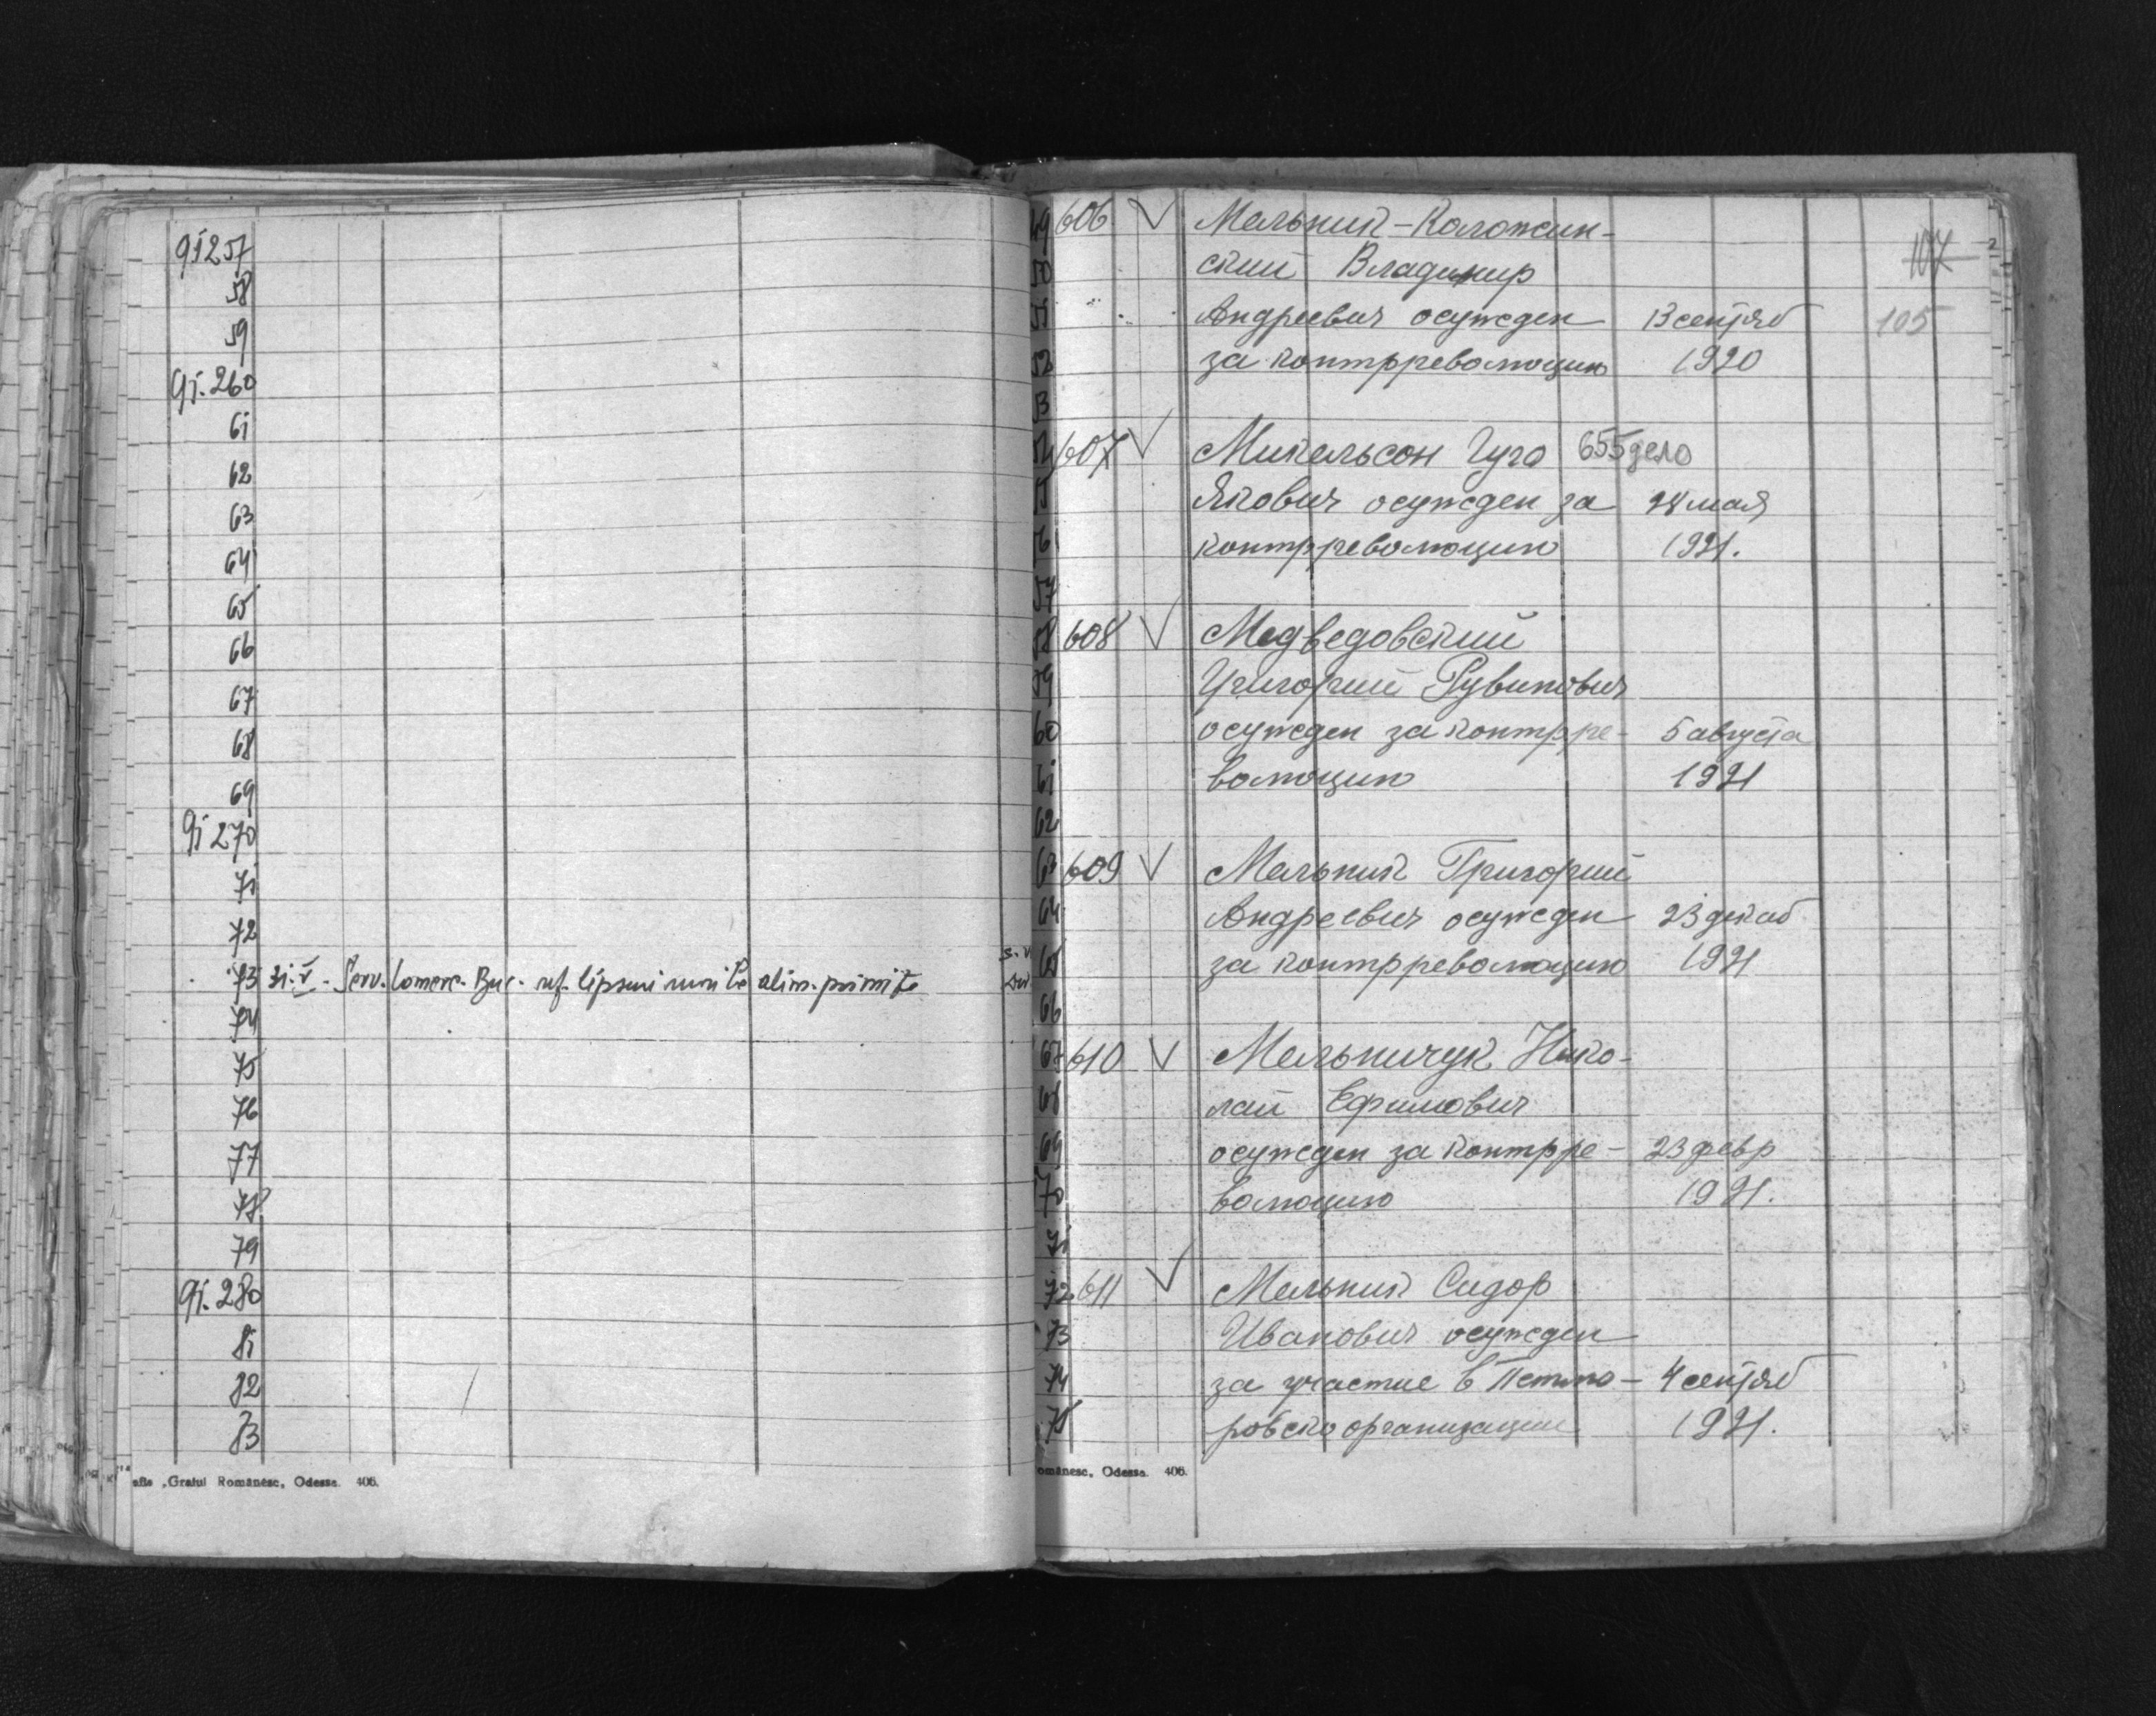 91257
58
59
91.260
61
62
63
64
65
66
67
68
69
91270
71
72
73 31.V. Serv. Comerc. Buc. rf. lipsuri alim. primite
74
75
76
77
78
79
91.280
81
82
83
"Graiul Românesc", Odessa. 406.
107
105
606 V Мельник-Коложин-
ский Владимир
Андреевич осужден 13 сентяб
за контрреволюцию 1920
607 V Микельсон Гуго 655 дело
Якович осужден за 28 мая
контрреволюцию 1921.
608 V Медведовский
Григорий Рувинович
осужден за контрре- 5 августа
волюцию 1921
609 V Мельник Григорий
Андреевич осужден 23 декаб
за контрреволюцию 1921
610 V Мельничук Нико-
лай Ефимович
осужден за контрре- 23 февр
волюцию 1921.
611 V Мельник Сидор
Иванович осужден
за участие в Петлю- 4 сентяб
ровско организации 1921.
49
50
51
52
53
54
55
56
57
58
59
60
61
62
63
64
65
66
67
68
69
70
71
72
73
74
75
omânesc, Odessa. 406.